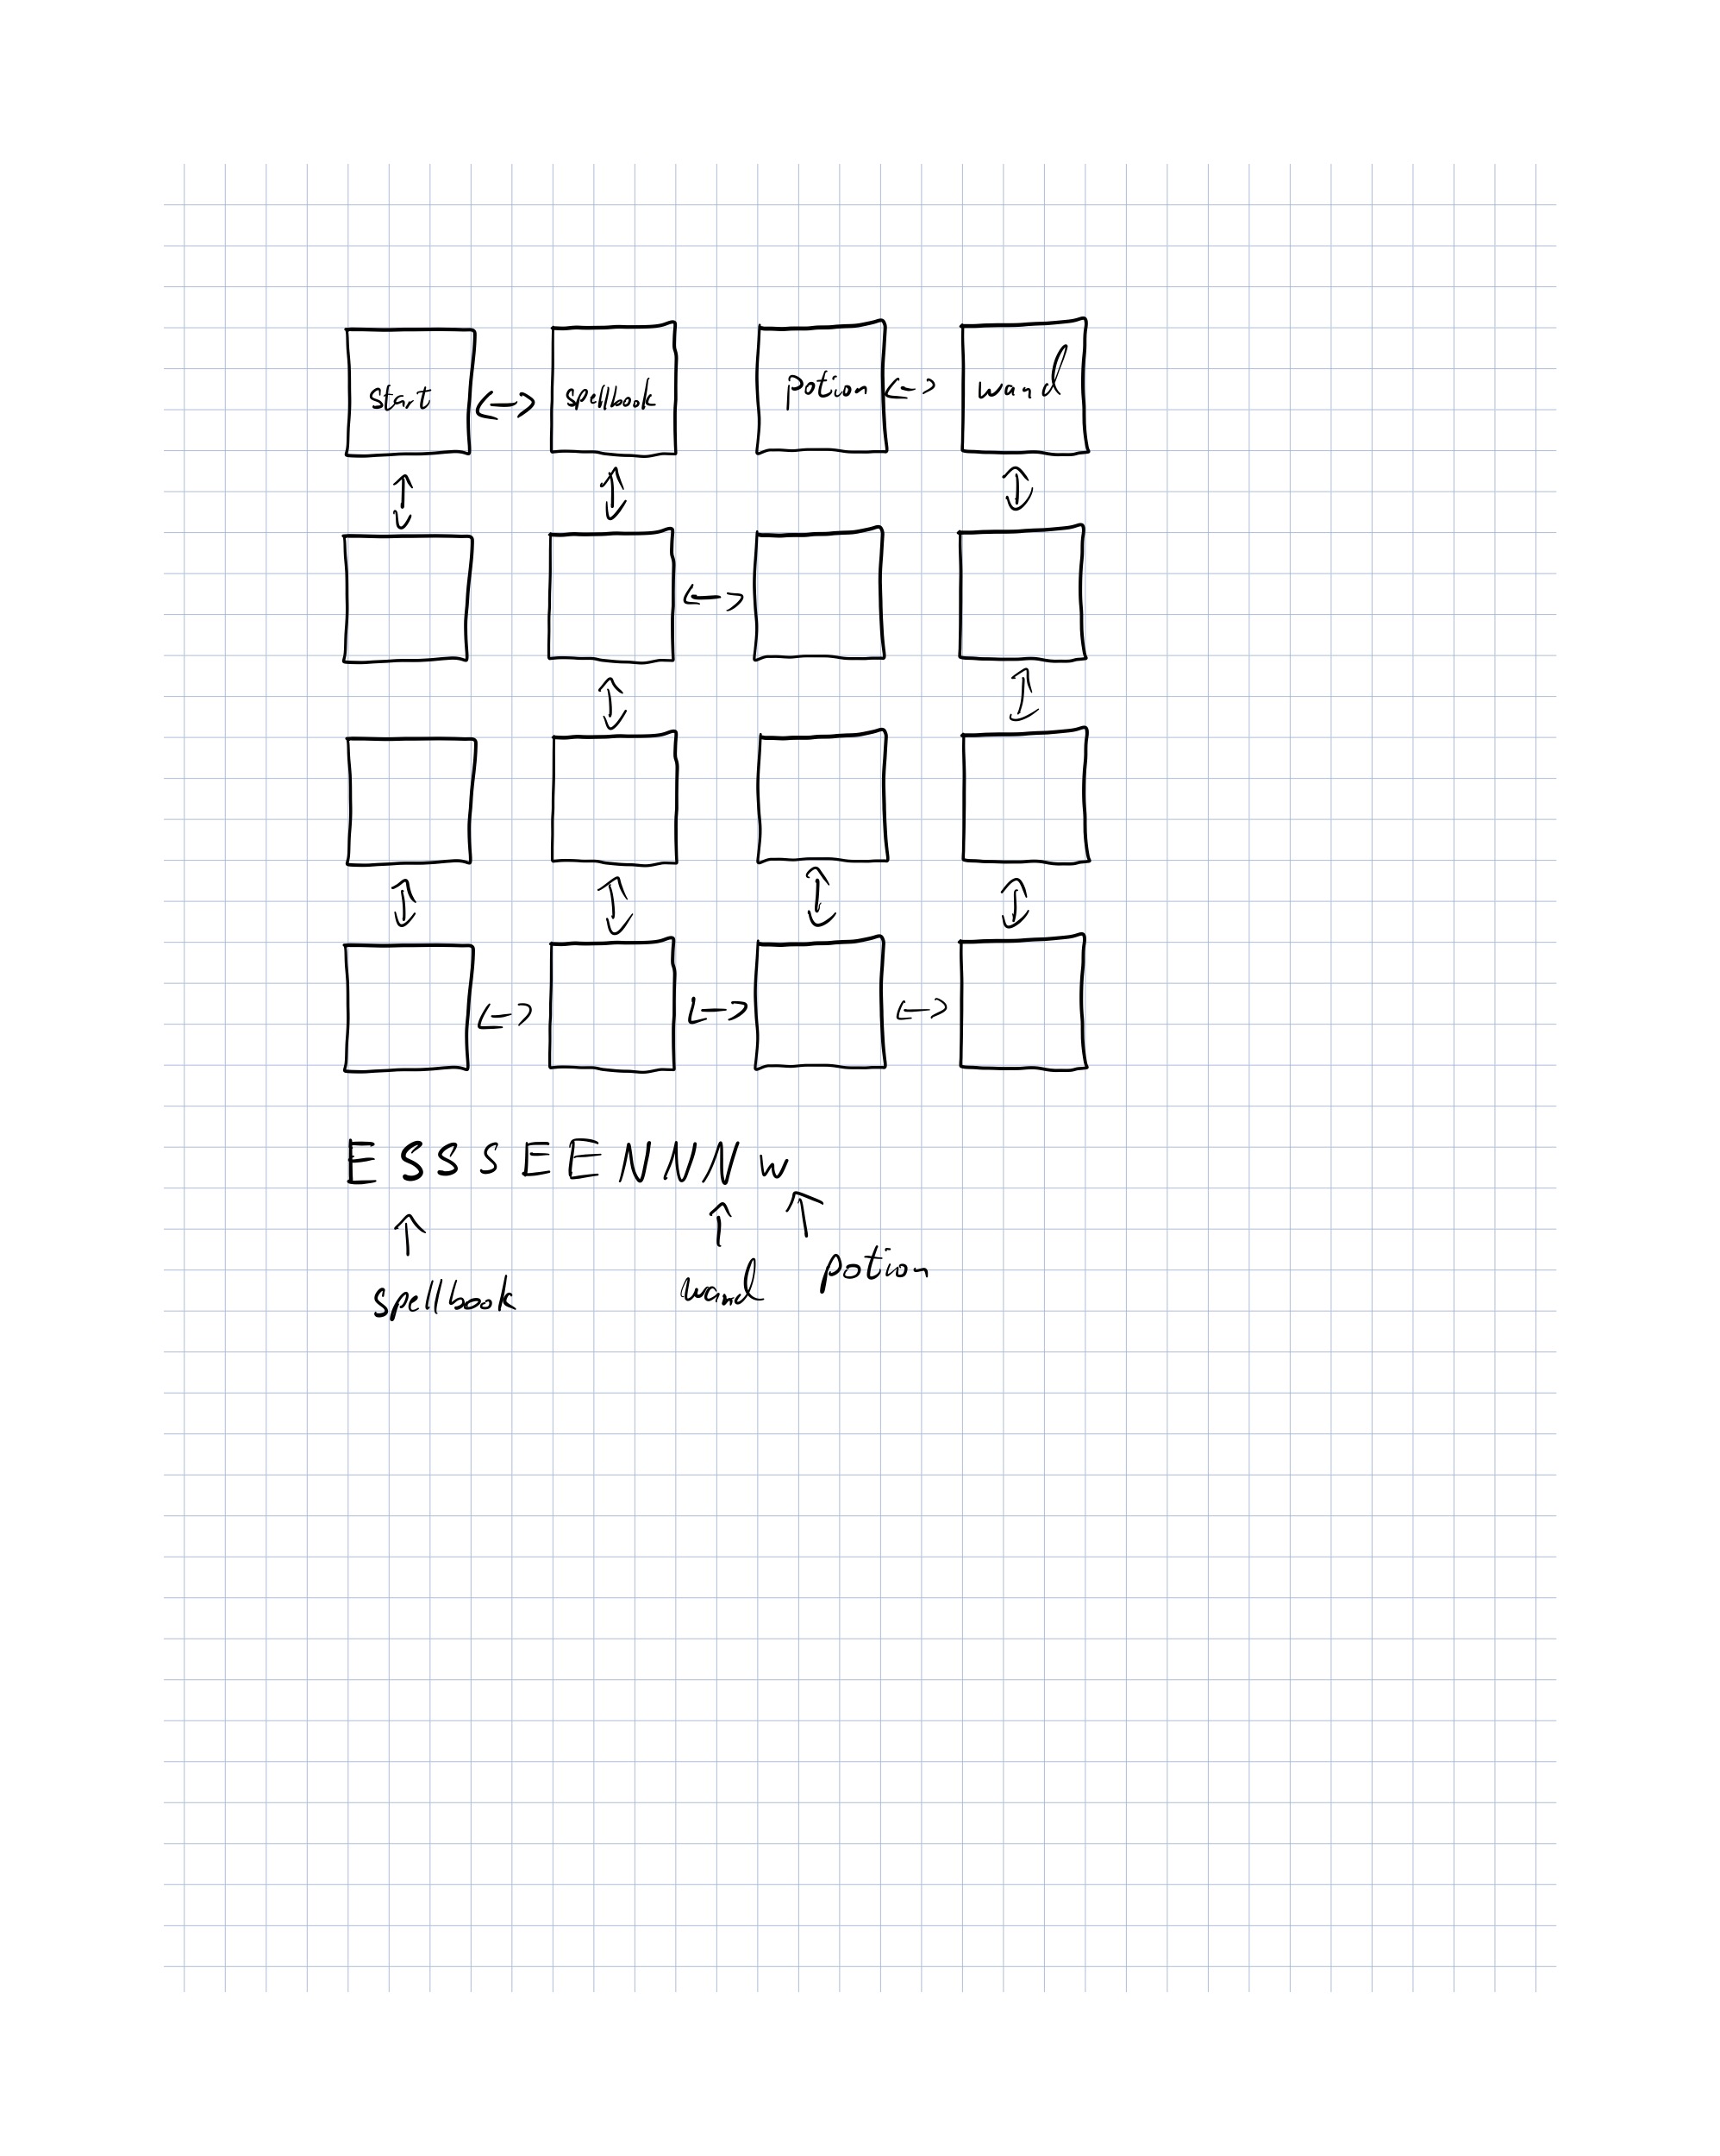 start spellbook potion wand
ESSSEENNNW
spellbook wand potion